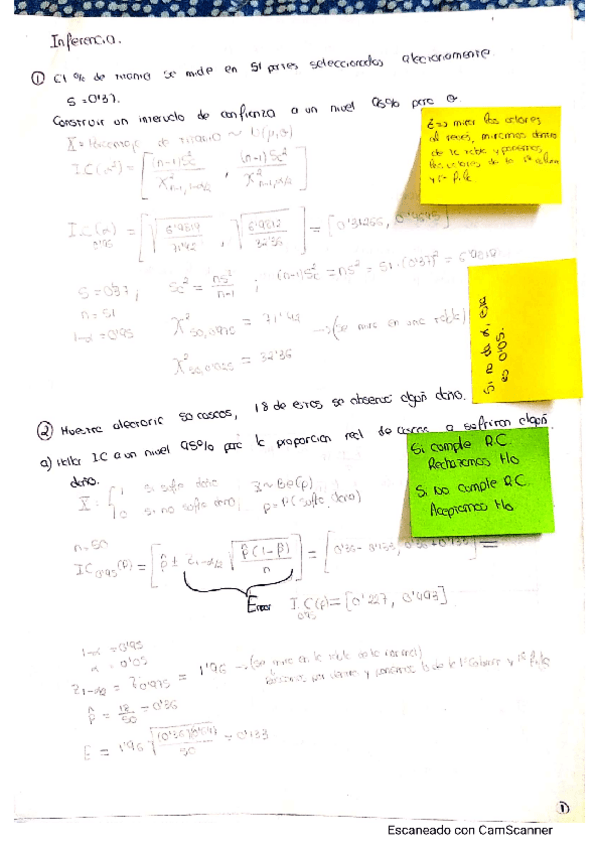 Inferencia.
① El % de titanio se mide en 51 partes seleccionadas aleatoriamente
S = 0'37.
Construir un intervalo de confianza a un nivel 95% para σ
X = Porcentaje de titanio ~ N(μ,σ)
IC(σ²) = [ (n-1)Sc² / X²n-1, 1-α/2 , (n-1)Sc² / X²n-1, α/2 ]
IC(σ) 0'95 = [ √(6'9819 / 71'42) , √(6'9812 / 32'36) ] = [0'31266, 0'4645]
S = 0'37; Sc² = ns² / n-1 ; (n-1)Sc² = ns² = 51·(0'37)² = 6'9819
n = 51
1-α = 0'95
X² 50,0'975 = 71'42 → (Se mira en una tabla)
X² 50,0'025 = 32'36
mirar los valores
al revés, miramos dentro
de la tabla y ponemos
los valores de la 1ª
y 1ª fila
Si no da α, es
0'05.
② Muestra aleatoria 50 cascos, 18 de estos se observó algún daño.
a) Hallar IC a un nivel 95% para la proporción real de cascos q sufriran algún
daño.
X = { 1 si sufre daño X ~ Be(p)
0 si no sufre daño p = P(sufre daño)
Si cumple R.C.
Rechazamos Ho
Si No cumple R.C.
Aceptamos Ho
n = 50
IC 0'95 (p) = [ p̂ ± z1-α/2 √(p̂(1-p̂) / n) ] = [0'36 - 0'133, 0'36 + 0'133] =
Error IC(p) 0'95 = [0'227, 0'493]
1-α = 0'95
α = 0'05
z1-α/2 = z0'975 = 1'96 → (Se mira en la tabla de la normal)
p̂ = 18/50 = 0'36
E = 1'96 √((0'36)(0'64) / 50) = 0'133
①
Escaneado con CamScanner